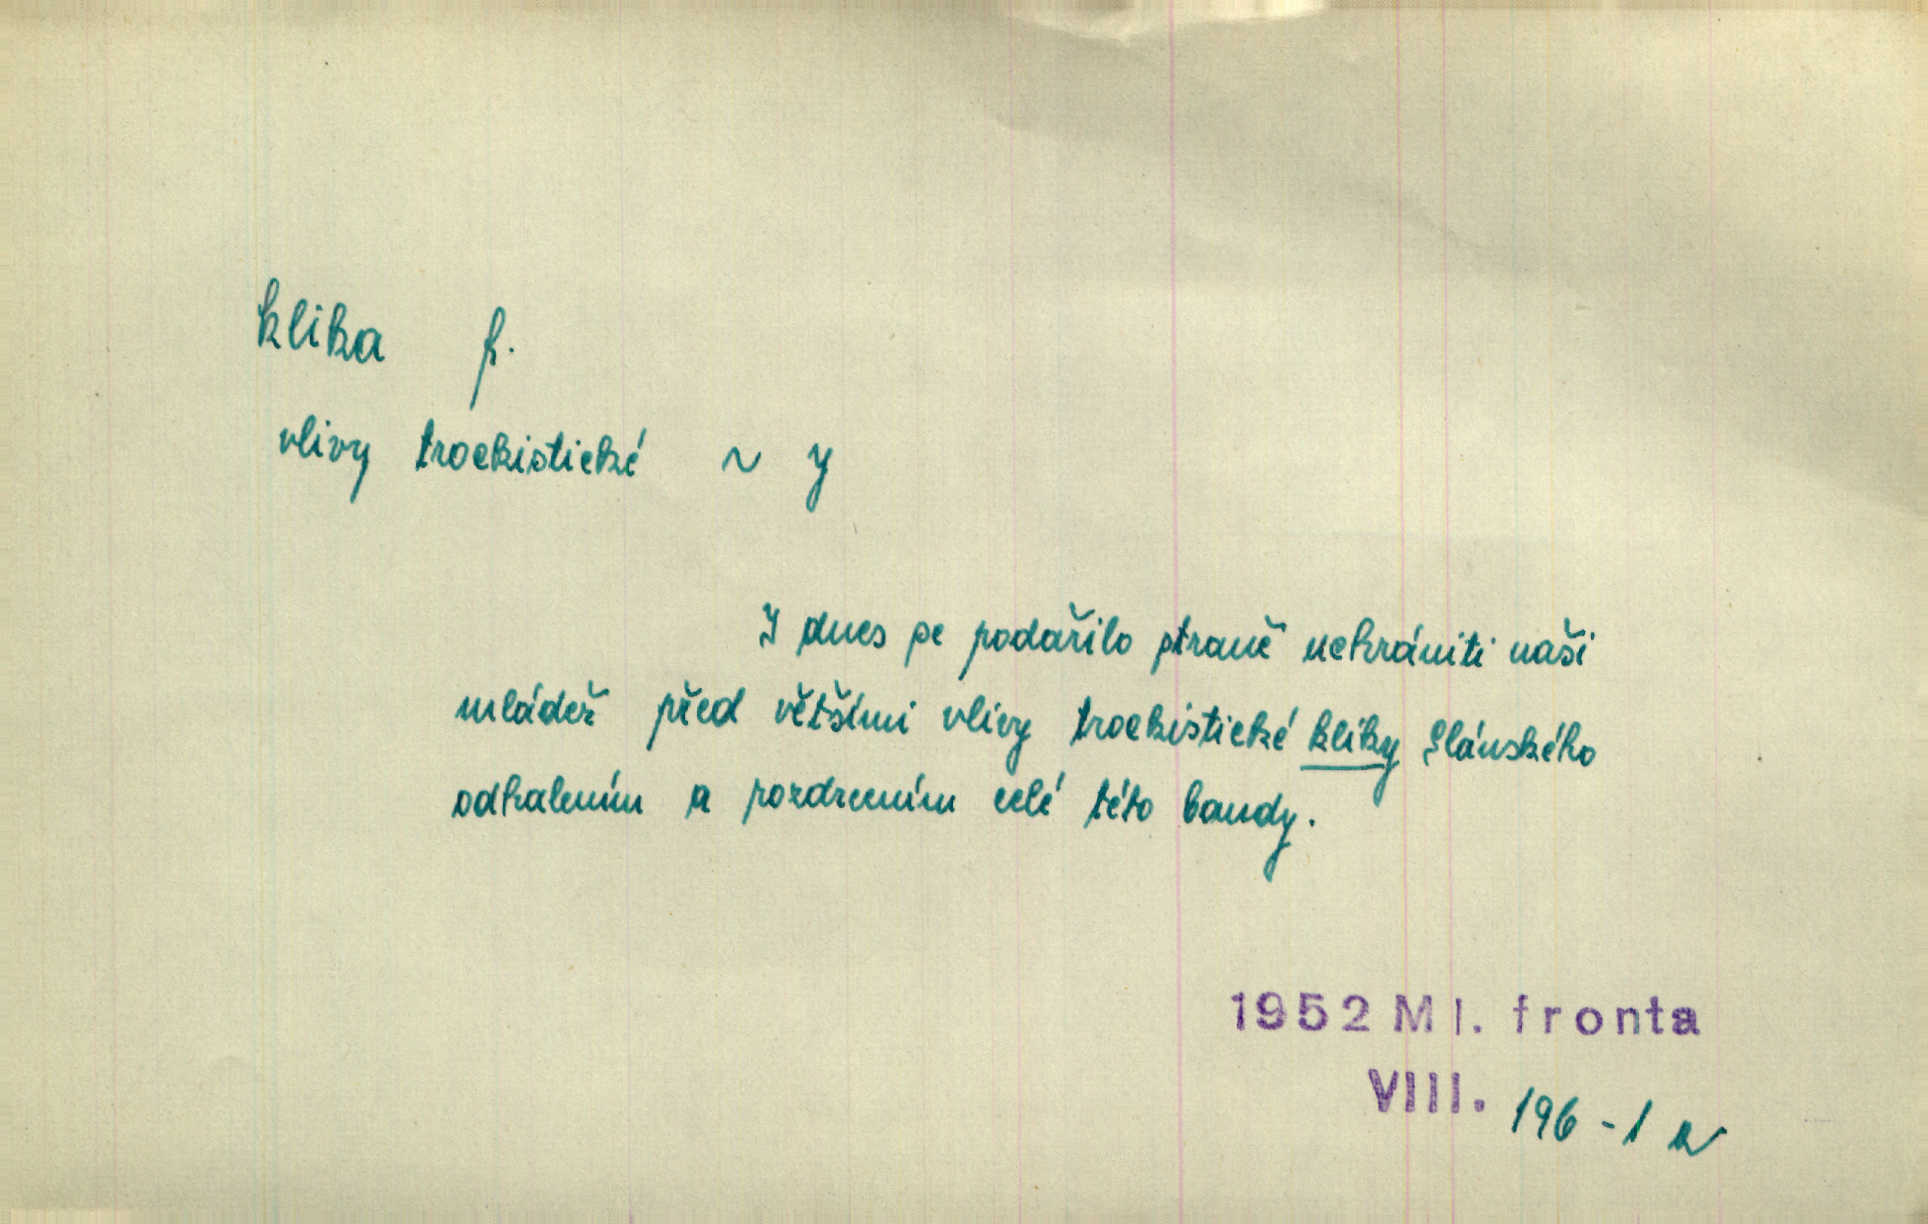 klika f.
vlivy trockistické ~ y
I dnes se podařilo straně uchrániti naši
mládež před většími vlivy trockistické kliky Slánského
odhalením a rozdrcením celé této bandy.
1952 Ml. fronta
VIII. 196 - 1